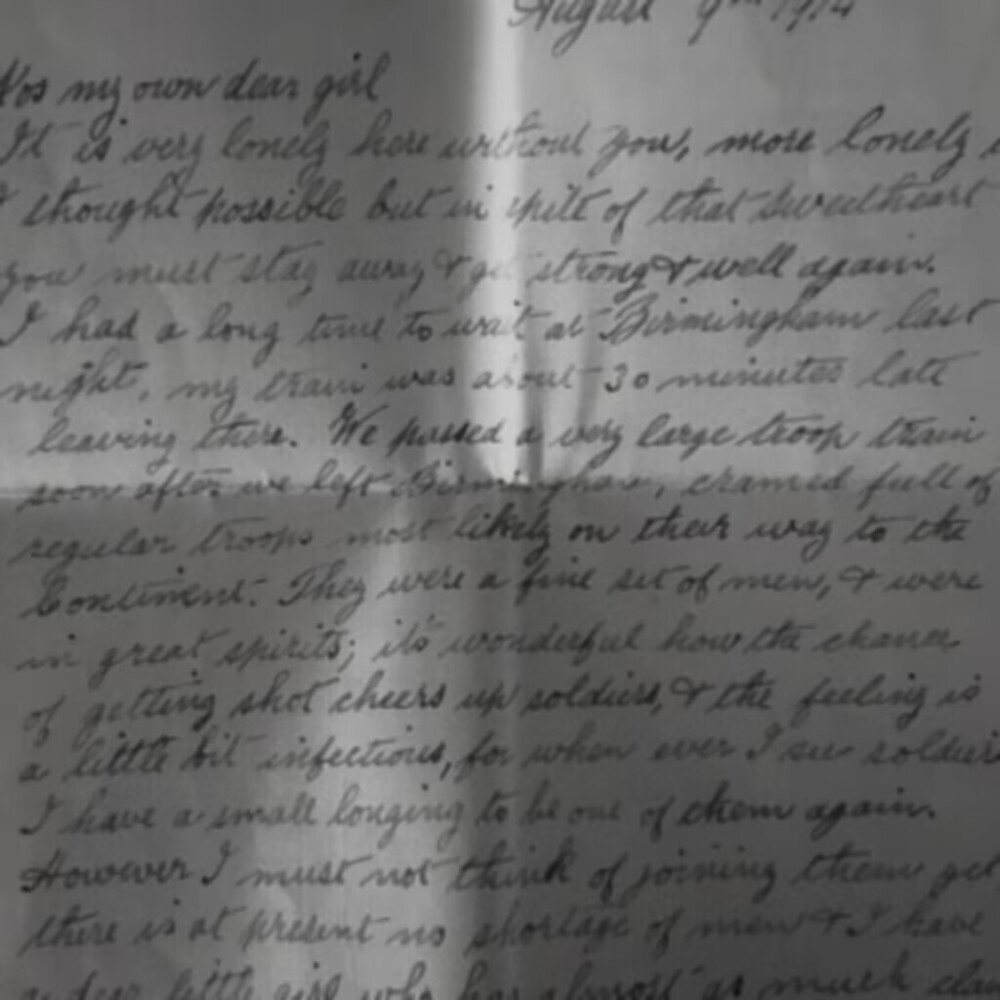 August 9th 1914
my own dear girl
It is very lonely here without you, more lonely
I thought possible but in spite of that sweetheart
you must stay away & get strong & well again.
I had a long time to wait at Birmingham last
night, my train was about 30 minutes late
leaving there. We passed a very large troop train
soon after we left Birmingham, cramed full of
regular troops most likely on their way to the
Continent. They were a fine set of men, & were
in great spirits; it's wonderful how the chance
of getting shot cheers up soldiers, & the feeling is
a little bit infectious, for when ever I see soldiers
I have a small longing to be one of them again.
However I must not think of joining them yet
there is at present no shortage of men & I have
a dear little girl who has almost as much